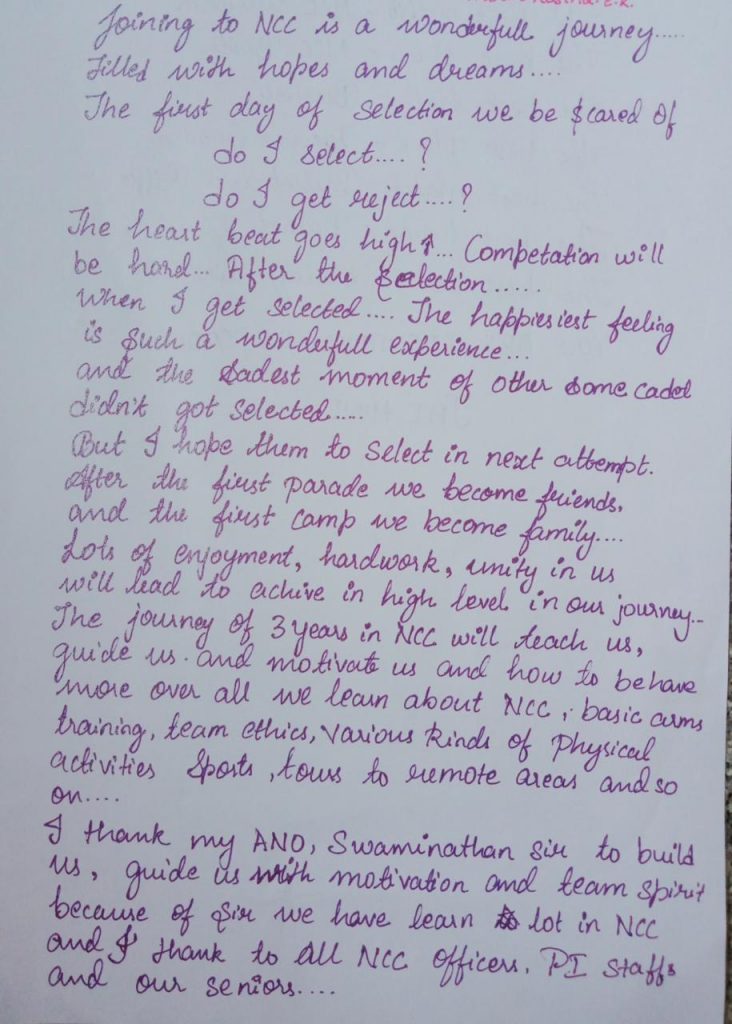 Joining to NCC is a wonderfull journey.....
Filled with hopes and dreams....
The first day of selection we be scared of
do I select....?
do I get reject....?
The heart beat goes high ↑... Competation will
be hard... After the selection.....
when I get selected.... The happiesiest feeling
is such a wonderfull experience...
and the sadest moment of other some cadet
didn't got selected.....
But I hope them to select in next attempt.
After the first parade we become friends,
and the first camp we become family....
Lots of enjoyment, hardwork, unity in us
will lead to achive in high level in our journey...
The journey of 3 years in NCC will teach us,
guide us. and motivate us and how to behave
more over all we learn about NCC, basic arms
training, team ethics, various kinds of Physical
activities sports, tours to remote areas and so
on....
I thank my ANO, Swaminathan sir to build
us, guide us with motivation and team spirit
because of sir we have learn lot in NCC
and I thank to all NCC officers, PI staffs
and our seniors....